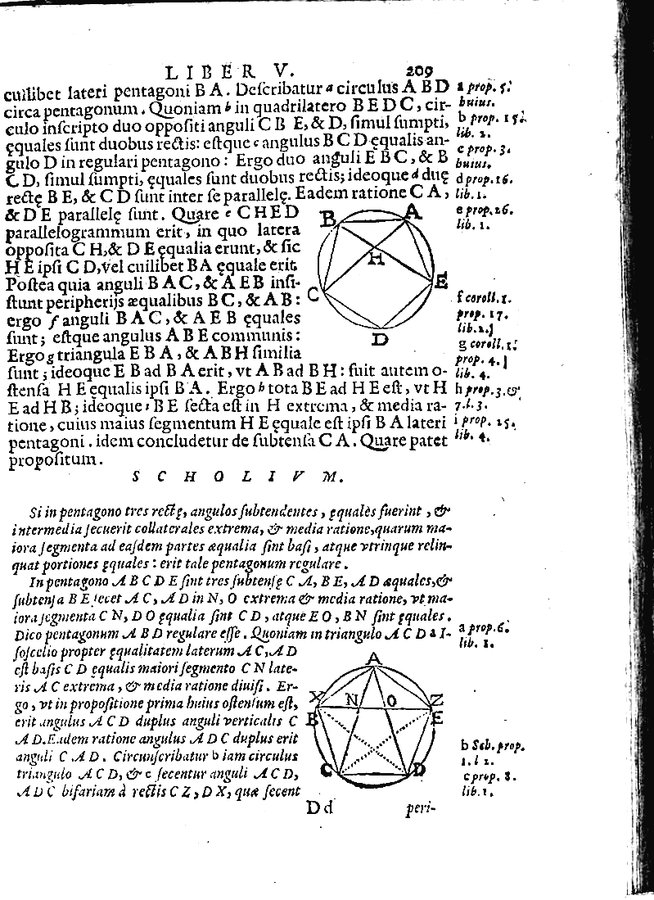 LIBER V. 209
cuilibet lateri pentagoni B A. Describatur a circulus A B D
circa pentagonum. Quoniam b in quadrilatero B E D C, cir-
culo inscripto duo oppositi anguli C B E, & D, simul sumpti,
ęquales sunt duobus rectis: estque c angulus B C D ęqualis an-
gulo D in regulari pentagono: Ergo duo anguli E B C, & B
C D, simul sumpti, ęquales sunt duobus rectis; ideoque d duę
rectę B E, & C D sunt inter se parallelę. Eadem ratione C A,
& D E parallelę sunt. Quare e C H E D
parallelogrammum erit, in quo latera
opposita C H, & D E ęqualia erunt, & sic
H E ipsi C D, vel cuilibet B A ęquale erit
Postea quia anguli B A C, & A E B insi-
stunt peripherijs æqualibus B C, & A B:
ergo f anguli B A C, & A E B ęquales
sunt; estque angulus A B E communis:
Ergo g triangula E B A, & A B H similia
sunt; ideoque E B ad B A erit, vt A B ad B H: fuit autem o-
stensa H E ęqualis ipsi B A. Ergo h tota B E ad H E est, vt H
E ad H B; ideoque i B E secta est in H extrema, & media ra-
tione, cuius maius segmentum H E ęquale est ipsi B A lateri
pentagoni. idem concludetur de subtensa C A. Quare patet
propositum.
a prop. 5.
huius.
b prop. 15.
lib. 2.
c prop. 3.
huius.
d prop. 26.
lib. 1.
e prop. 26.
lib. 1.
f coroll. 1.
prop. 17.
lib. 2.
g coroll. 1.
prop. 4.
lib. 4.
h prop. 3. &
7. l. 3.
i prop. 15.
lib. 4.
B A
H
C E
D
SCHOLIVM.
Si in pentagono tres rectę, angulos subtendentes, ęquales fuerint, &
intermedia secuerit collaterales extrema, & media ratione, quarum ma-
iora segmenta ad easdem partes æqualia sint basi, atque vtrinque relin-
quat portiones ęquales: erit tale pentagonum regulare.
In pentagono A B C D E sint tres subtensę C A, B E, A D æquales, &
subtensa B E secet A C, A D in N, O extrema & media ratione, vt ma-
iora segmenta C N, D O ęqualia sint C D, atque E O, B N sint ęquales.
Dico pentagonum A B D regulare esse. Quoniam in triangulo A C D a I-
soscelio propter ęqualitatem laterum A C, A D
est basis C D ęqualis maiori segmento C N late-
ris A C extrema, & media ratione diuisi. Er-
go, vt in propositione prima huius ostensum est,
erit angulus A C D duplus anguli verticalis C
A D. Eadem ratione angulus A D C duplus erit
anguli C A D. Circunscribatur b iam circulus
triangulo A C D, & c secentur anguli A C D,
A D C bifariam à rectis C Z, D X, quæ secent
a prop. 6.
lib. 1.
b Sch. prop.
1. l 2.
c prop. 8.
lib. 1.
A
X N O Z
B E
C D
D d peri-